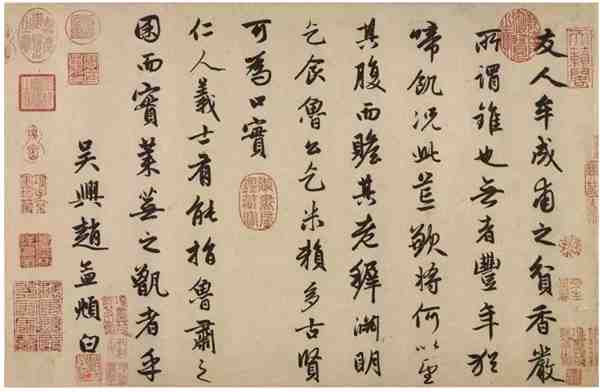 友人牟成甫之貧香嚴
所謂錐也無者豐年猶
啼飢況此荒歉將何以望
其腹而贍其老穉淵明
乞食魯公乞米賴多古賢
可爲口實
仁人義士有能指魯肅之
囷而實萊蕪之甑者乎
吳興趙孟頫白